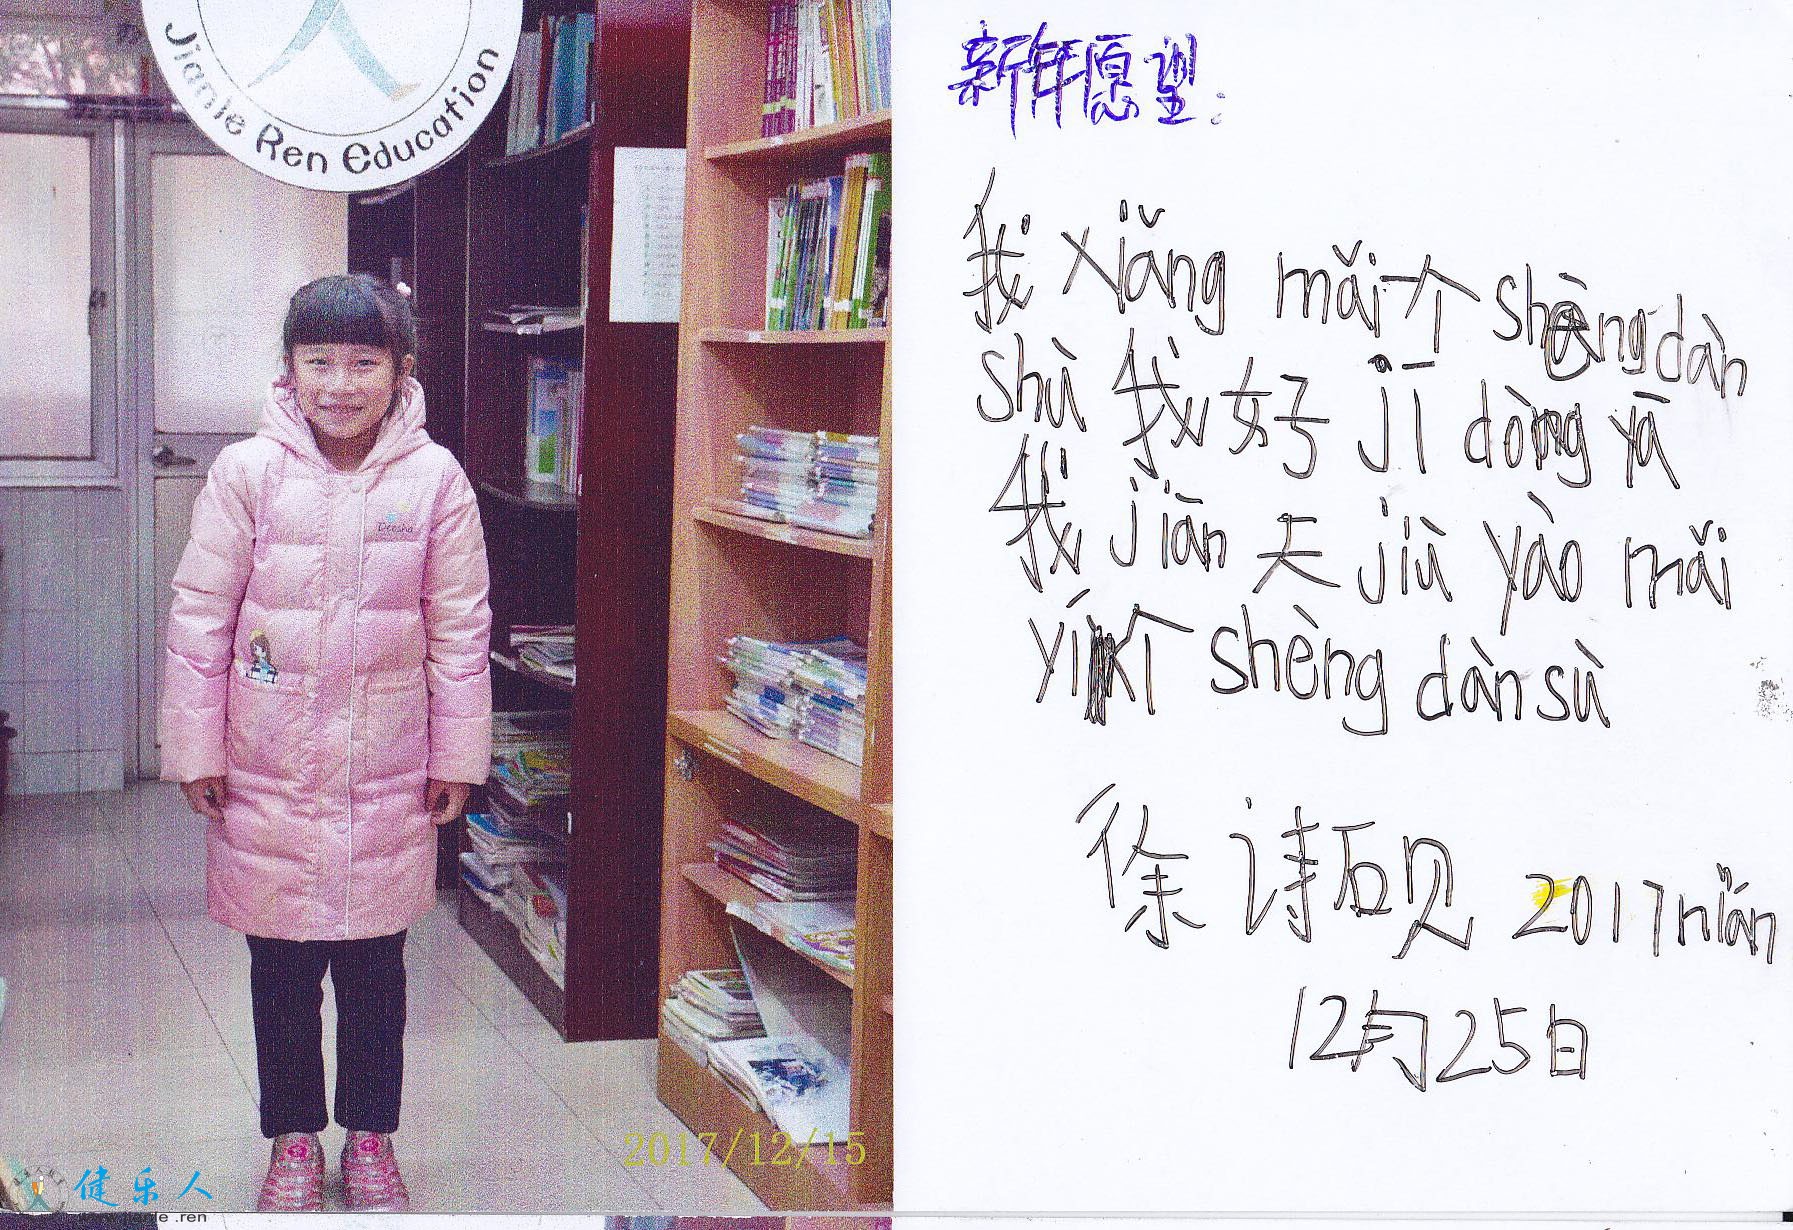 Jianle Ren Education
Deesha
2017/12/15
健乐人
新年愿望:
我 xiǎng mǎi 个 shèng dàn
shù 我好 jī dòng yā
我 jiān 天 jiù yào mǎi
yí 个 shèng dàn sù
徐诗砚 2017 nián
12月25日